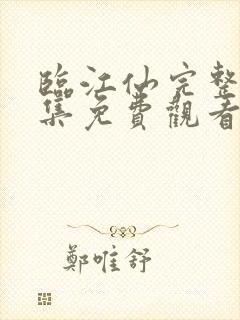 臨江仙完整
集免費觀看
鄭唯舒